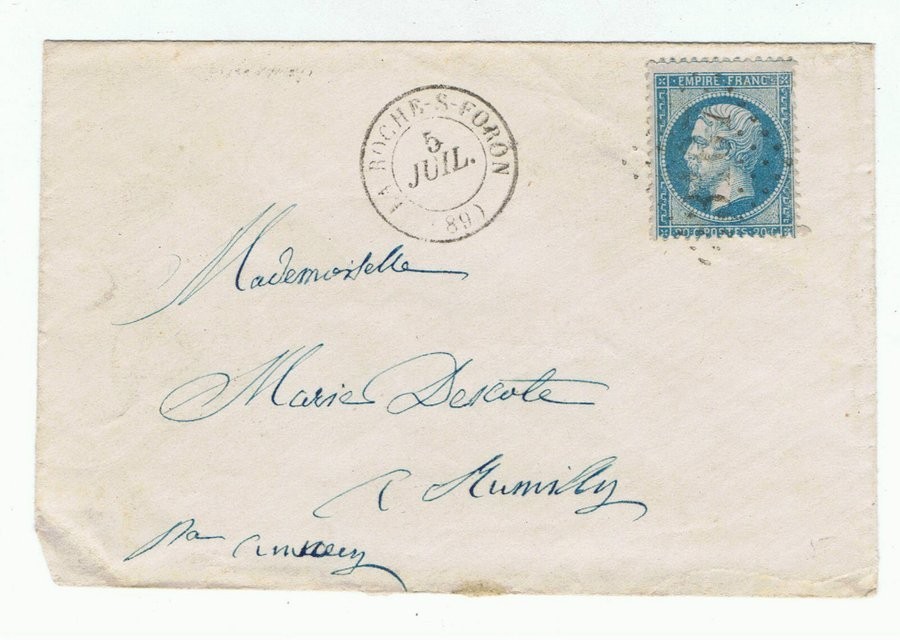 EMPIRE FRANC
LA ROCHE-S-FORON
5
JUIL.
(89)
20 C POSTES 20 C
Mademoiselle
Marie Descote
a Rumilly
par annecy